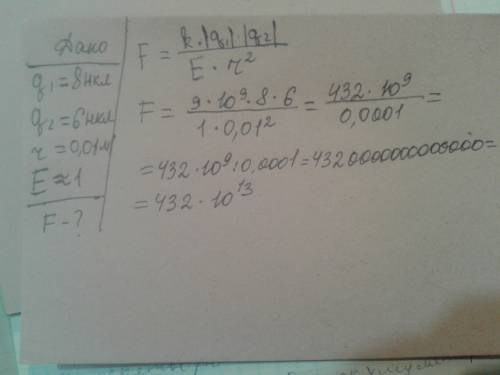 Дано
q₁ = 8 нкл
q₂ = 6 нкл
r = 0,01 м
E ≈ 1
F - ?
F = k·|q₁|·|q₂| / E · r²
F = 9·10⁹·8·6 / 1·0,01² = 432·10⁹ / 0,0001 =
= 432·10⁹:0,0001 = 4320000000000000 =
= 432·10¹³